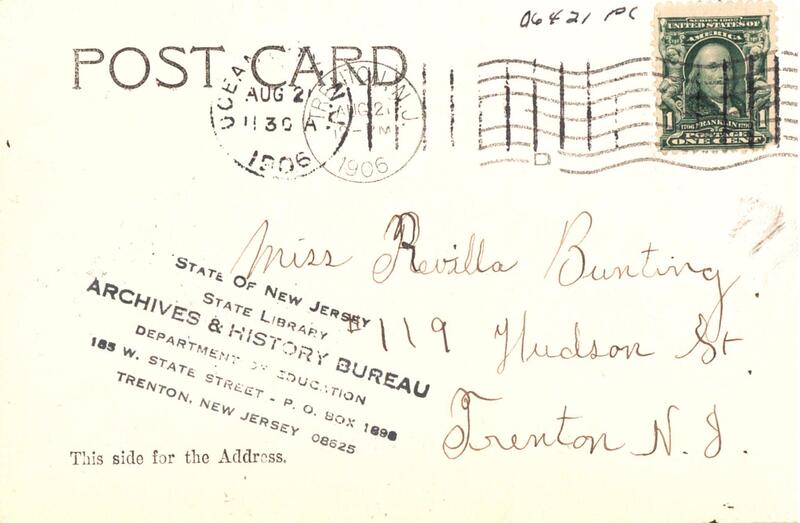 06421 PC
POST CARD
SERIES 1902
UNITED STATES OF
AMERICA
1706 FRANKLIN 1790
POSTAGE
1 ONE CENT 1
OCEAN
AUG 21
11 30 A
N.J.
1906
TRENTON, N.J.
AUG 21
M
1906
Miss Revilla Bunting.
#119 Hudson St.
Trenton N. J.
STATE OF NEW JERSEY
STATE LIBRARY
ARCHIVES & HISTORY BUREAU
DEPARTMENT OF EDUCATION
185 W. STATE STREET - P. O. BOX 1898
TRENTON, NEW JERSEY 08625
This side for the Address.